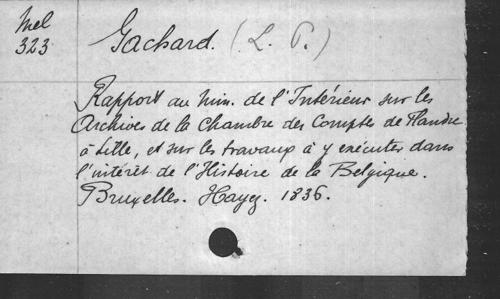 Mel
323
Gachard. (L. P.)
Rapport au Min. de l'Intérieur sur les
Archives de la Chambre des Comptes de Flandre
à Lille, et sur les travaux à y exécuter dans
l'intérêt de l'Histoire de la Belgique.
Bruxelles. Hayez. 1836.